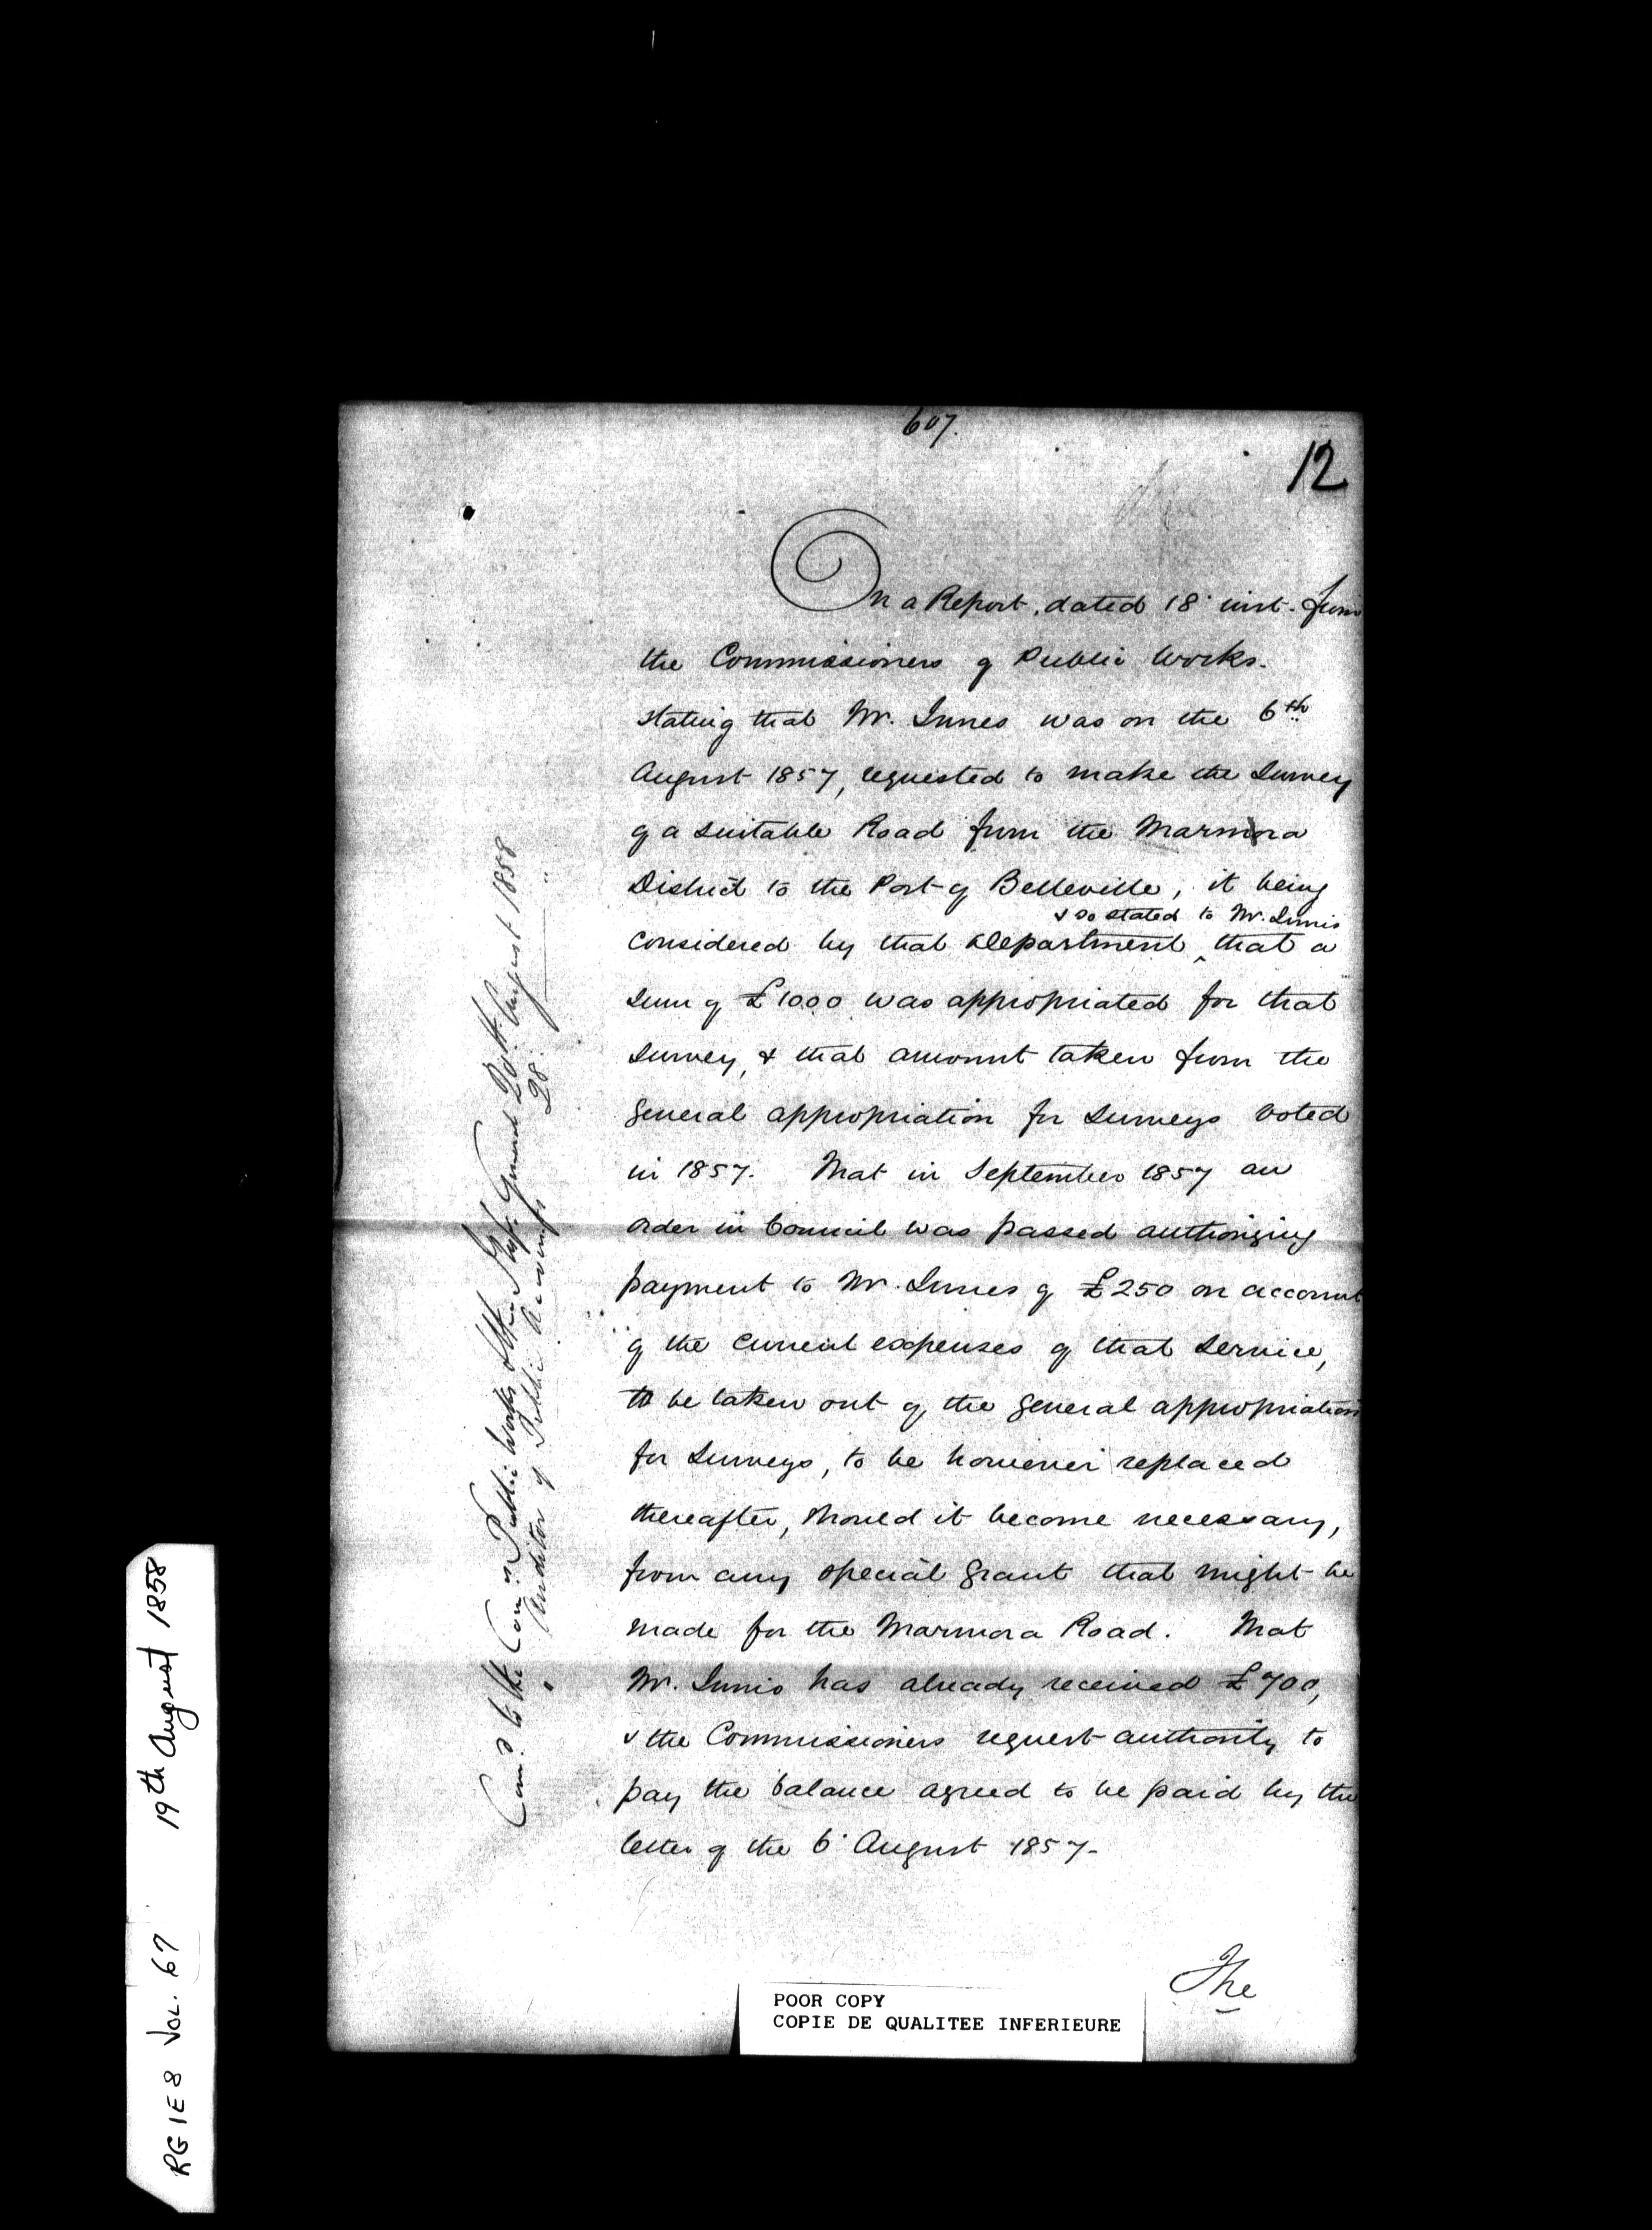 607.
12
On a Report, dated 18' inst. from
the Commissioners of Public Works.
stating that Mr. Innes was on the 6th
August 1857, requested to make the Survey
of a suitable Road from the Marmora
District to the Port of Belleville, it being
& so stated to Mr. Innis
considered by that Department ^ that a
sum of £1000 was appropriated for that
survey, & that amount taken from the
general appropriation for Surveys voted
in 1857. That in September 1857 an
order in Council was passed authorizing
payment to Mr. Innes of £250 on account
of the current expenses of that service,
to be taken out of the general appropriation
for Surveys, to be however replaced
thereafter, should it become necessary,
from any special grant that might be
made for the Marmora Road. That
Mr. Innis has already received £700,
& the Commissioners request authority to
pay the balance agreed to be paid by the
letter of the 6' August 1857-
The
Com.d to the Com.rs Public Works & the Insp. General 20th August 1858
" Auditor of Public Accounts 28 "
POOR COPY
COPIE DE QUALITEE INFERIEURE
RG 1E8 Vol. 67 19th August 1858